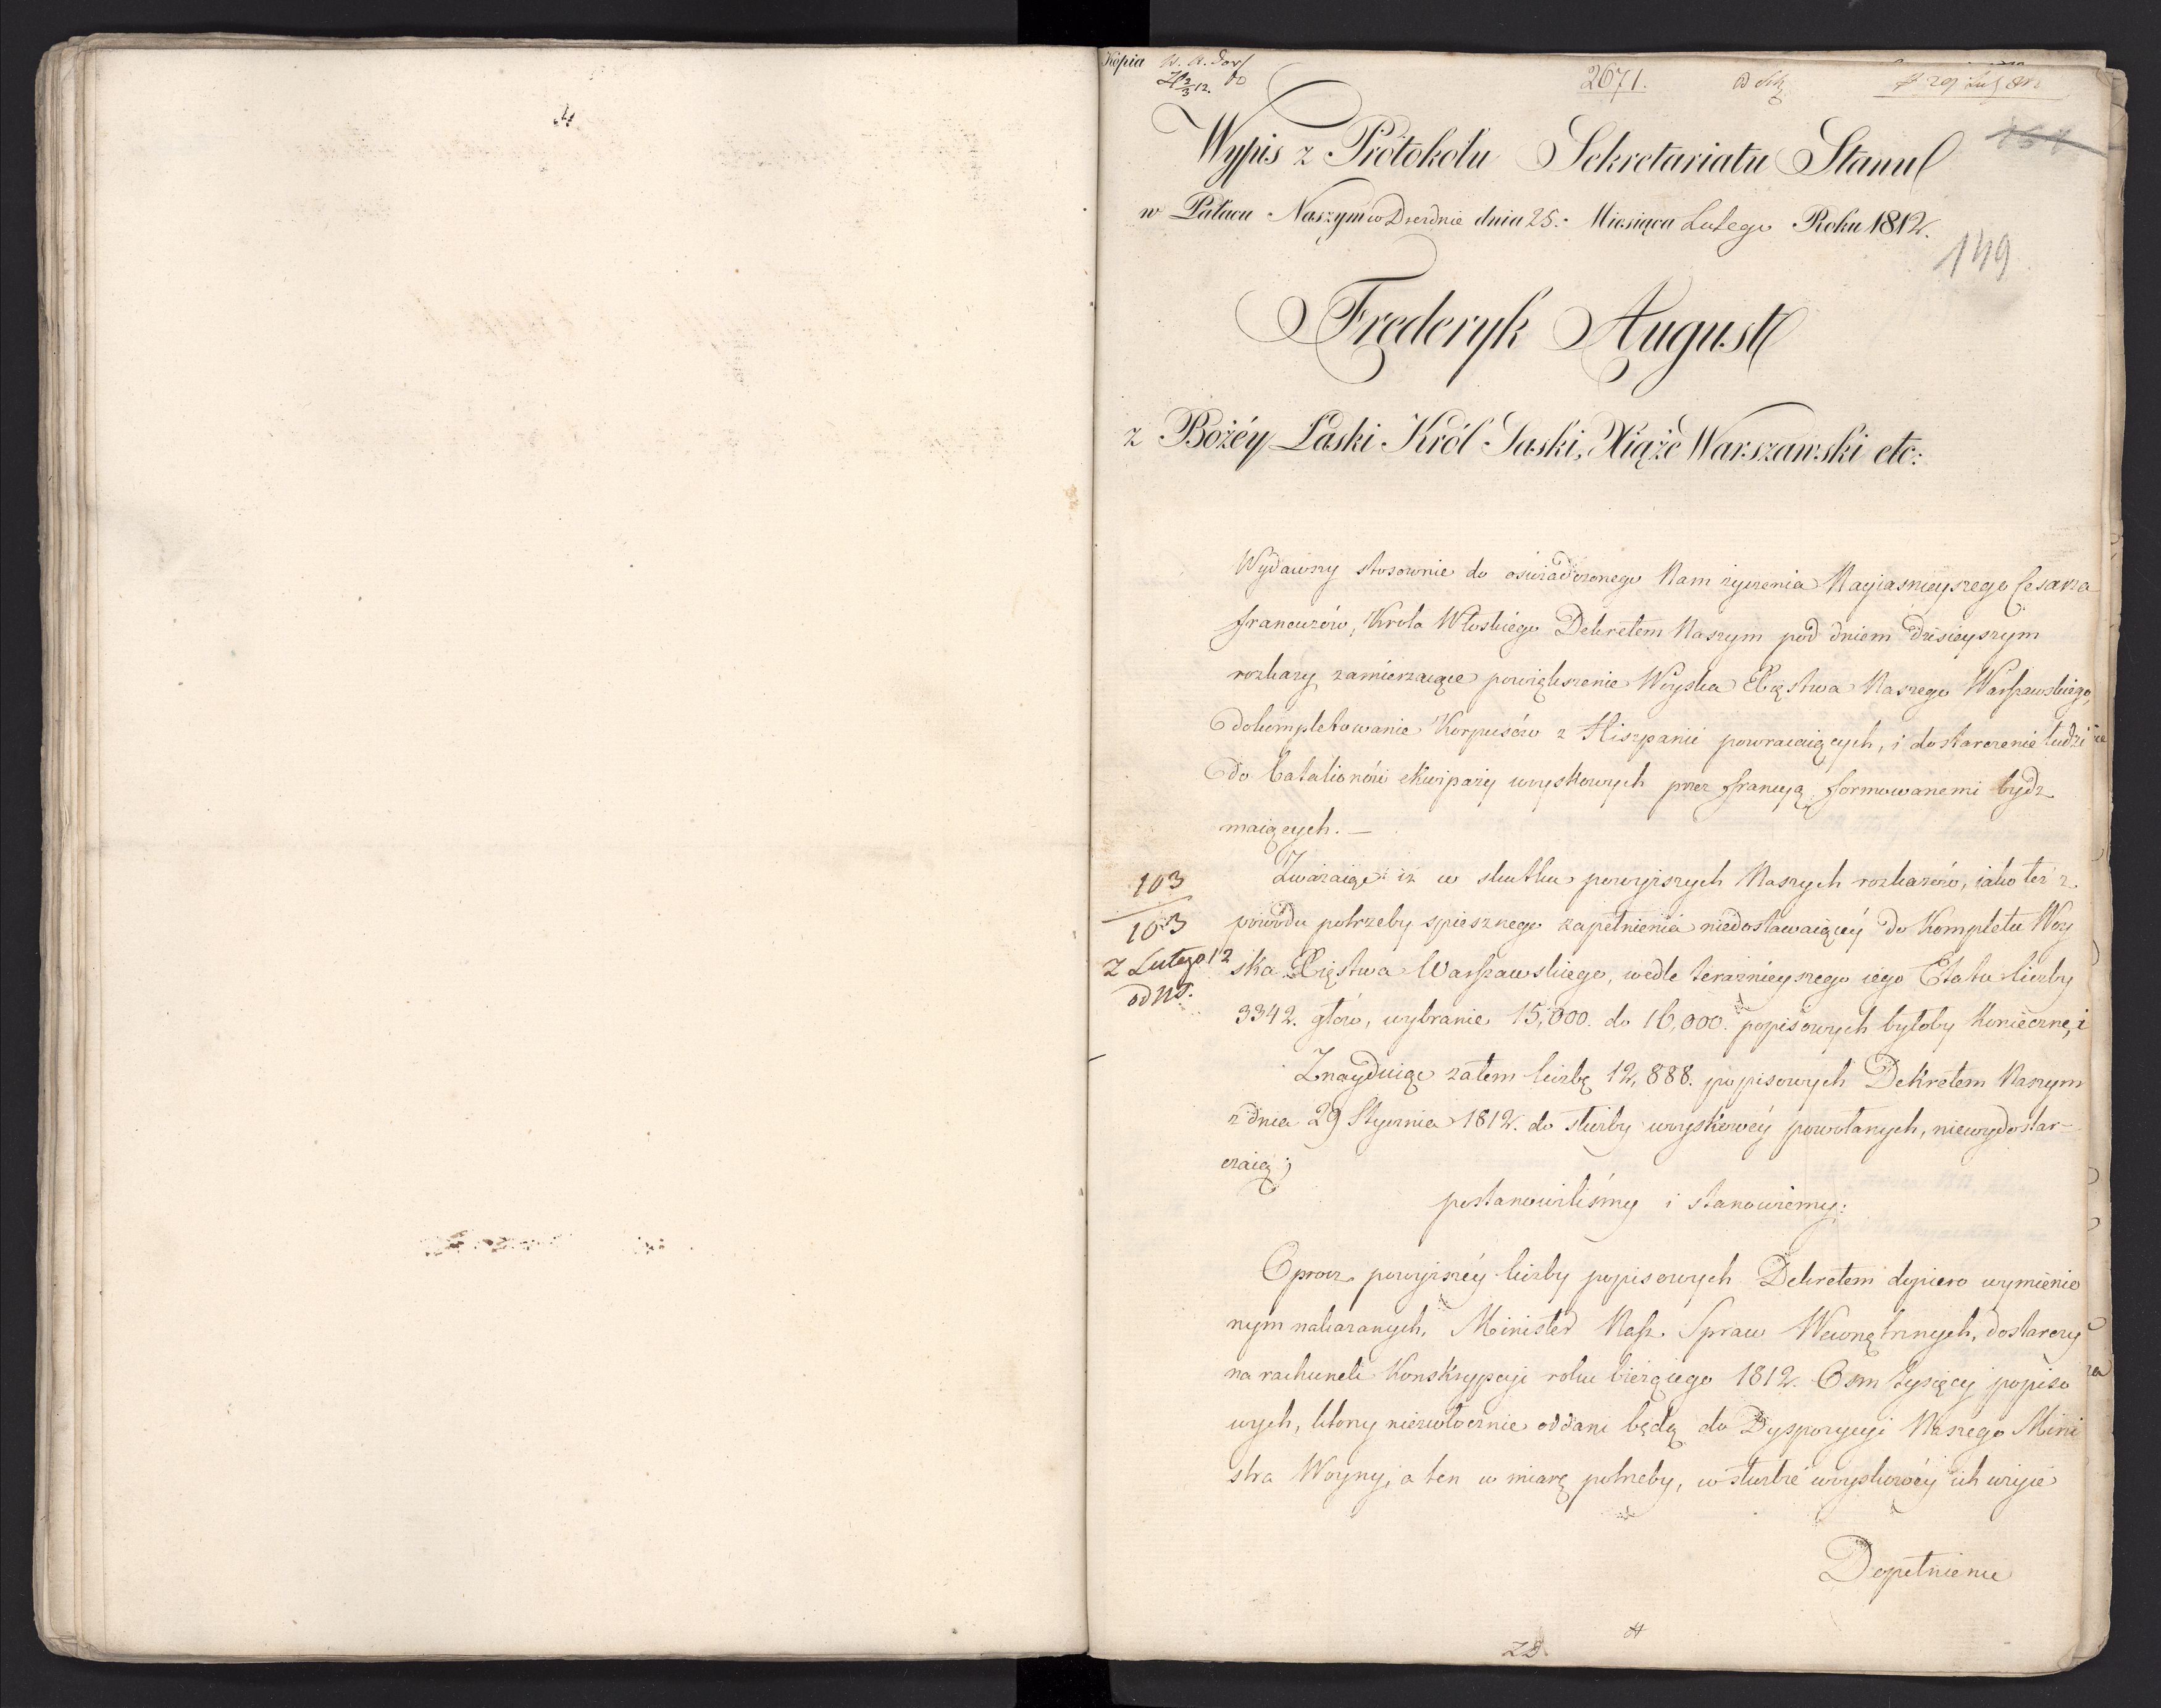 Kopia
2671.
Wypis z Protokołu Sekretariatu Stanu
w Pałacu Naszym w Dreźnie dnia 25. Miesiąca Lutego Roku 1812.
149
Frederyk August
z Bożéy Łaski Król Saski, Xiąże Warszawski etc:
Wydawszy stosownie do oświadczonego Nam życzenia Nayiaśnieyszego Cesarza
francuzów, Króla Włoskiego Dekretem Naszym pod dniem dzisieyszym
rozkazy zamierzaiące powiększenie Woyska Xięstwa Naszego Warszawskiego,
dokompletowanie Korpusów z Hiszpanii powracaiących, i dostarczenie ludzi
do batalionów ekwipaży woyskowych przez francyą formowanemi bydz
maiących. —
Zważaiąc iż w skutku powyższych Naszych rozkazów, iako też z
powodu potrzeby spiesznego zapełnienia niedostawaiącey do Kompletu Woy
ska Xięstwa Warszawskiego, wedle teraznieyszego iego Etatu liczby
3342. głów, wybranie 15,000. do 16,000. popisowych byłoby konieczne, i
103
103
z Lutego 12
Znayduiąc zatem liczbę 12,888. popisowych Dekretem Naszym
z dnia 29 Stycznia 1812. do służby woyskowéy powołanych, niewydostar-
czaiącą;
postanowiliśmy i stanowiemy:
Oprocz powyższéy liczby popisowych Dekretem dopiero wymienio
nym nakazanych, Minister Nasz Spraw Wewnętrznych, dostarczy
na rachunek Konskrypcyi roku bieżącego 1812. Osm tysięcy popiso
wych, którzy niezwłocznie oddani będą do Dyspozycyi Naszego Mini
stra Woyny, a ten w miarę potrzeby, w służbie woyskowéy ich użyie
Dopełnienie